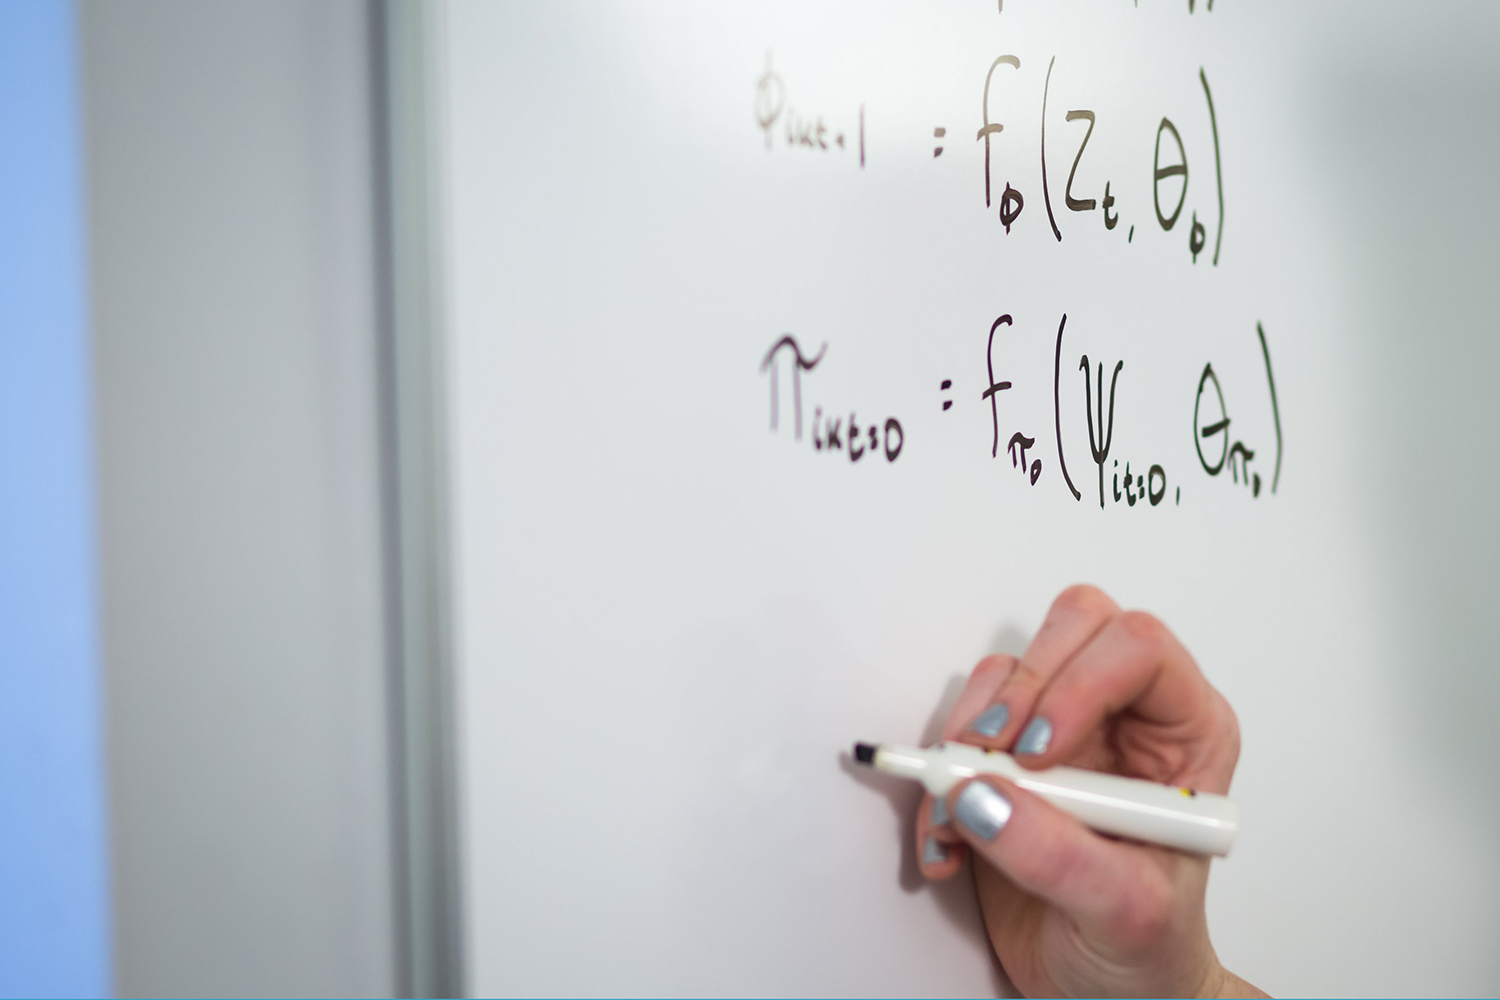 ϕikt-1 = fϕ(Zt, θϕ)
πikt=0 = fπ0(ψit=0, θπ0)